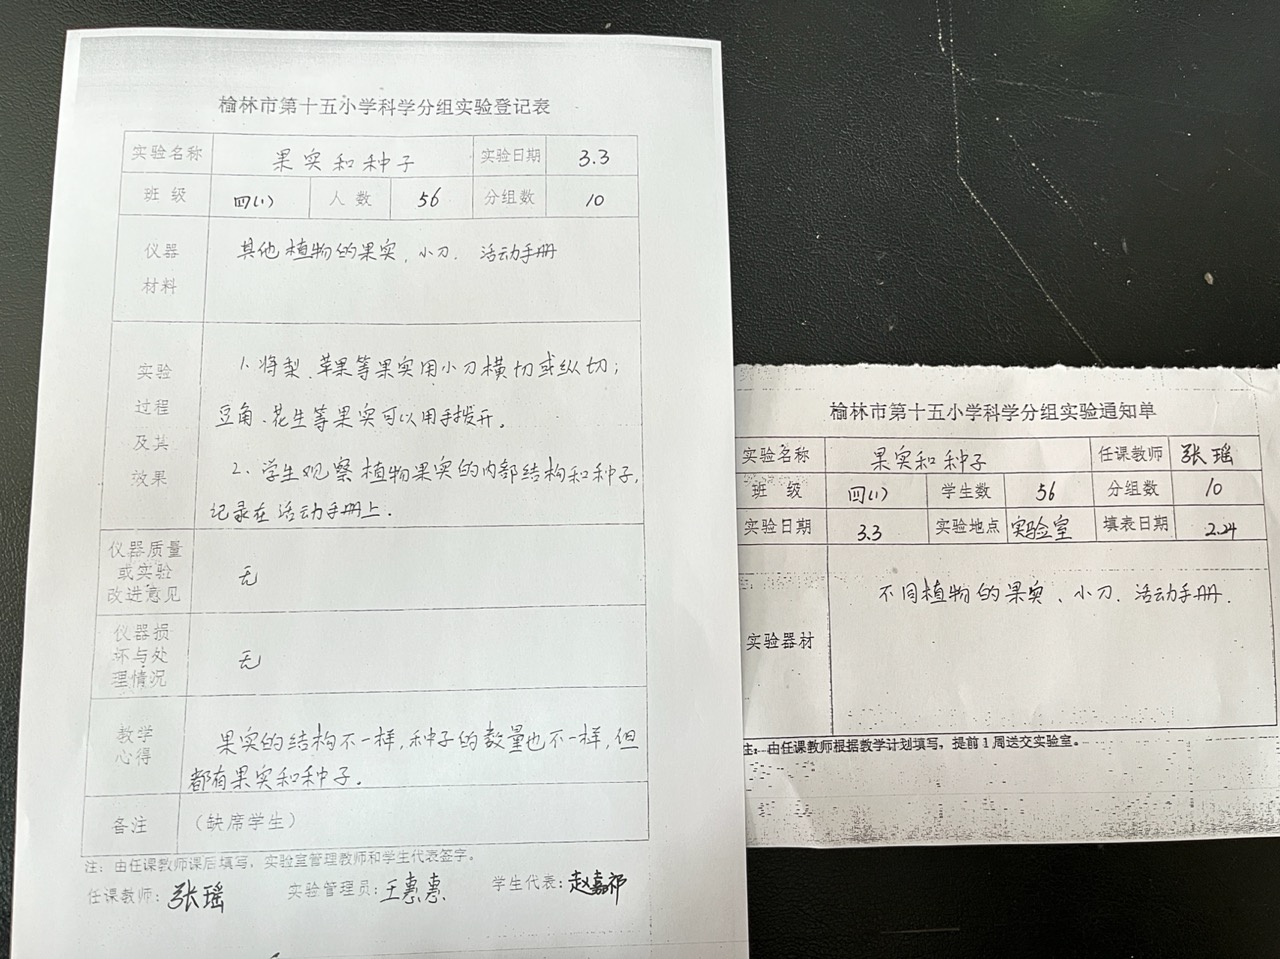 榆林市第十五小学科学分组实验登记表
实验名称 果实和种子 实验日期 3.3
班级 四(1) 人数 56 分组数 10
仪器
材料
其他植物的果实、小刀、活动手册
实验
过程
及其
效果
1、将梨、苹果等果实用小刀横切或纵切；
豆角、花生等果实可以用手拨开。
2、学生观察植物果实的内部结构和种子，
记录在活动手册上。
仪器质量
或实验
改进意见
无
仪器损
坏与处
理情况
无
教学
心得
果实的结构不一样，种子的数量也不一样，但
都有果实和种子。
备注 （缺席学生）
注：由任课教师课后填写，实验室管理教师和学生代表签字。
任课教师：张瑶 实验管理员：王惠惠 学生代表：赵嘉祁
榆林市第十五小学科学分组实验通知单
实验名称 果实和种子 任课教师 张瑶
班级 四(1) 学生数 56 分组数 10
实验日期 3.3 实验地点 实验室 填表日期 2.24
实验器材
不同植物的果实、小刀、活动手册.
注：由任课教师根据教学计划填写，提前1周送交实验室。